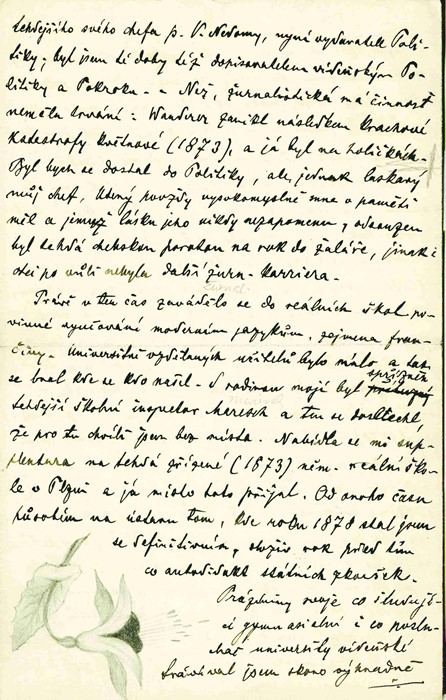 tehdejšího svého chefa p. V. Nedomy, nyní vydavatele Poli-
tiky; byl jsem té doby též dopisovatelem vídeňským Po-
litiky a Pokroku. – Než, žurnalistická má činnost
neměla trvání: Wanderer zanikl následkem krachové
katastrofy květnové (1873), a já byl na holičkách.
Byl bych se dostal do Politiky, ale jednak laskavý
můj chef, který povždy vysokomyslně mne v paměti
měl a jemuž lásku jeho nikdy nezapomenu, odsouzen
byl tehdá chebskou porotou na rok do žaláře, jinak i
otci po vůli nebyla další žurn. karriera.
Právě v ten čas zavádělo se do reálních škol po-
vinné vyučování moderním jazykům, zejmena fran-
činy. Universitně vzdělaných učitelů bylo málo a tak
se bral kde se kdo našel. S rodinou mojí byl spřízněn
tehdejší školní inspector a ten se doslechl,
že pro tu chvíli jsem bez místa. Nabídla se mi sup-
plentura na tehdá zřízené (1873) něm. reální ško-
le v Plzni a já místo toto přijal. Od onoho času
působím na ústavu tom, kde roku 1878 stal jsem
se definitivním, složiv rok před tím
co autodidakt státních zkoušek.
Prázdniny svoje co studují-
cí gymnasiální i co poslu-
chač university vídeňské
trávíval jsem skoro výhradně